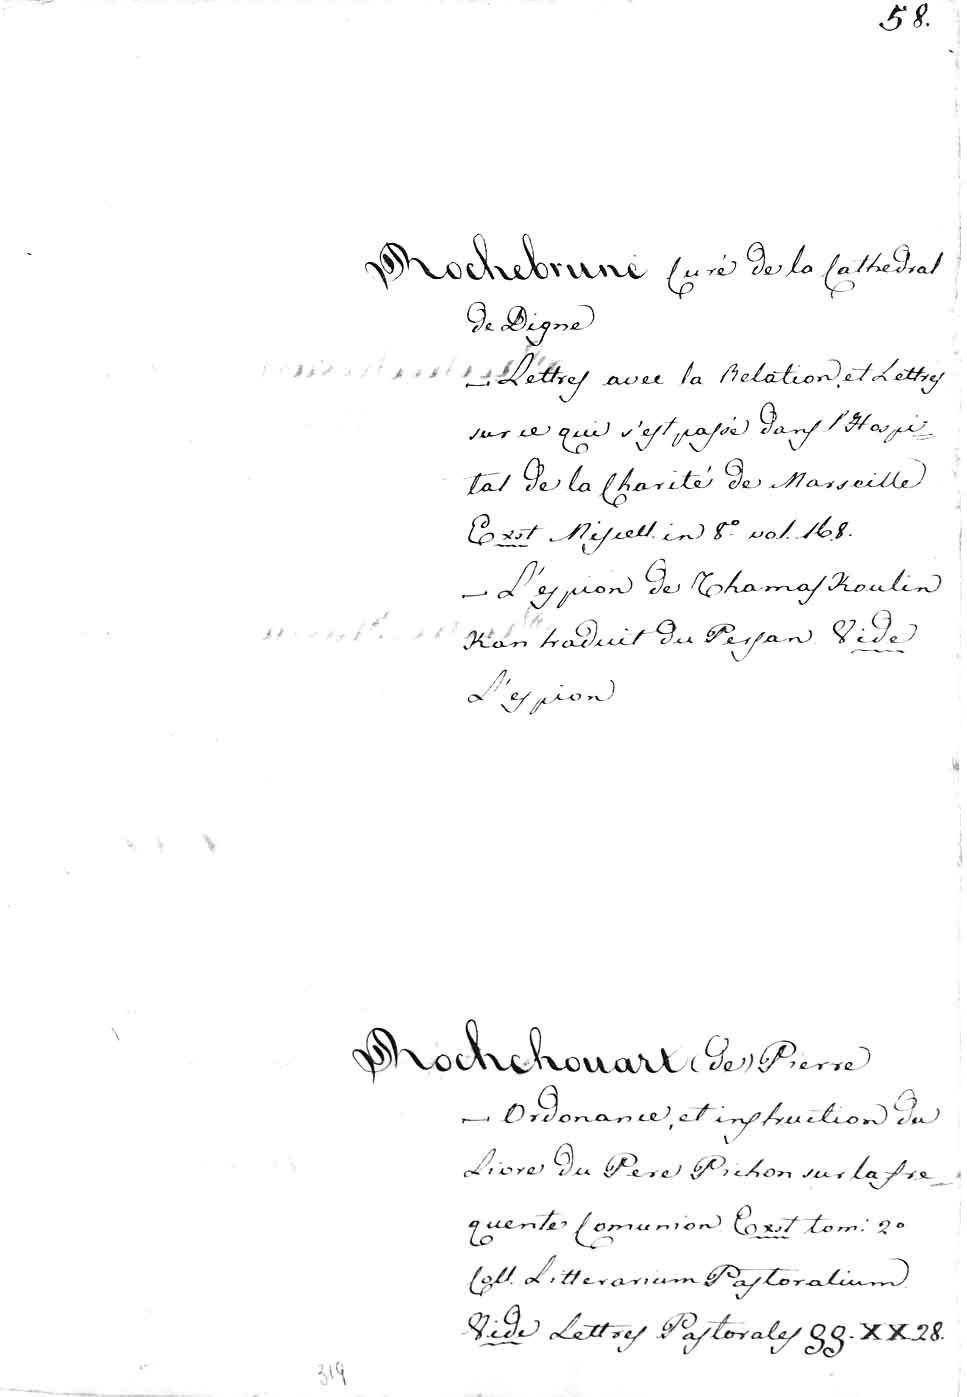 58.
Rochebrune Curé de la Cathedral
de Digne
— Lettres avec la Relation, et Lettres
sur ce qui s'est passé dans l'Hospi=
tal de la Charité de Marseille
Exst Miscell. in 8° vol. 168.
— L'espion de Thamas Koulin
Kan traduit du Persan Vide
L'espion
Rochehouart (de) Pierre
— Ordonance, et instruction du
Livre du Pere Pichon sur la fre=
quente Comunion Exst tom: 2°
Coll. Litterarium Pastoralium
Vide Lettres Pastorales gg. XX. 28.
319